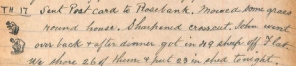 TH 17 Sent Post Card to Rosebank. Mowed some grass
round house. Sharpened crosscut. John went
over back & after dinner got in 49 sheep off Flat.
We shore 26 of them & put 23 in shed tonight.